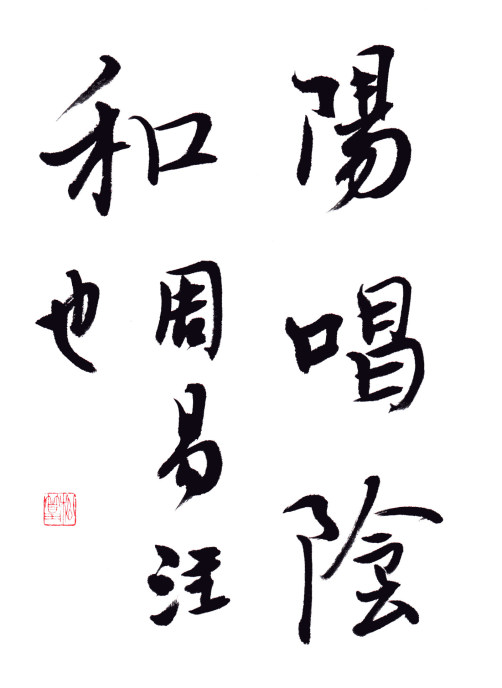 陽唱陰
和
周易注
也